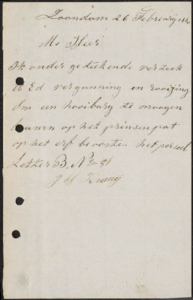 Zaandam 26 Februarij
Mr Heer
De onder geteekende verzoek
te Ed vergunning en rooijing
den een hooiberg te mogen
bouwen op het prinsenpat
op het erf beoosten het perceel
Letter B. No 31
J H